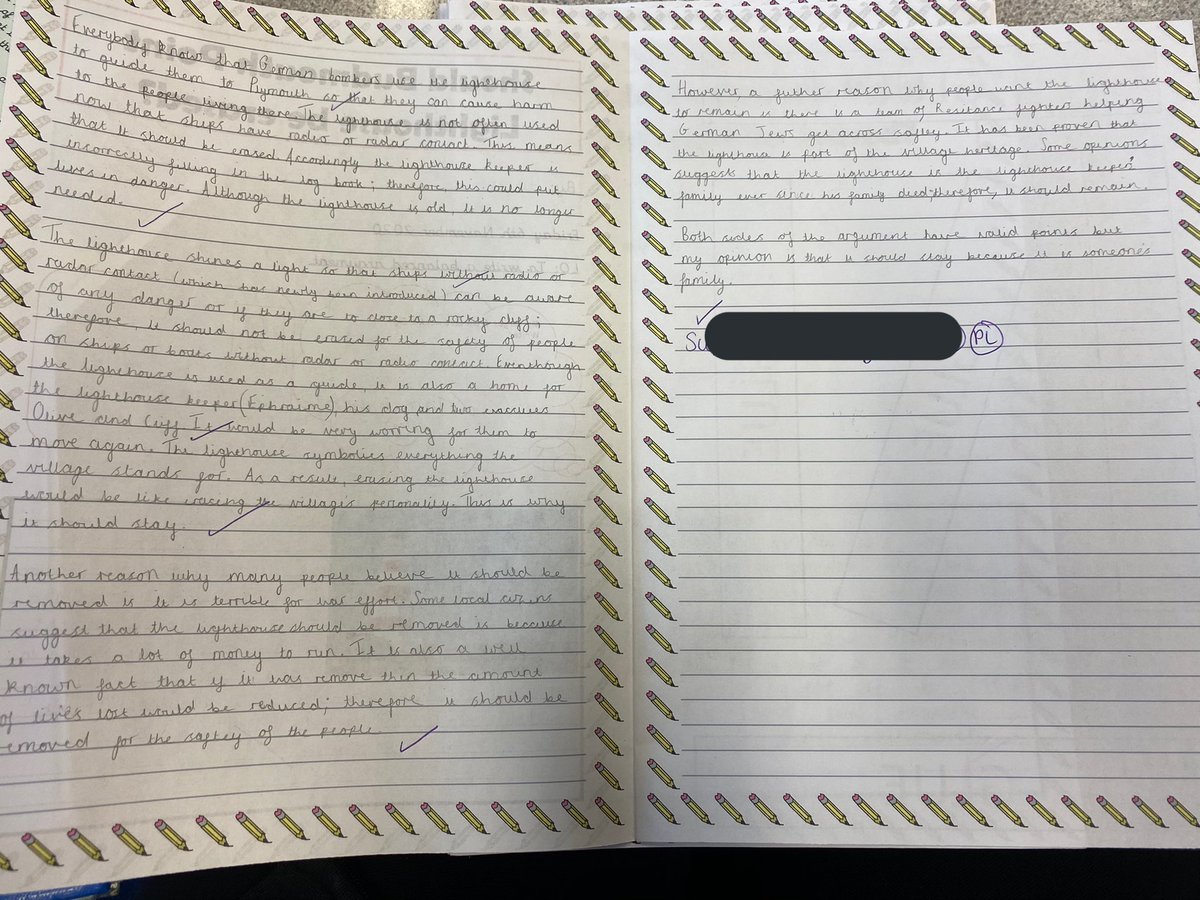 Everybody know that German bombers use the lighthouse
to guide them to Plymouth so that they can cause harm
to the people living there. The lighouse is not often used
now that ships have radio or radar contact. This means
that it should be erased. Accordingly the lighthouse keeper is
incorrectly filling in the log book; therefore, this could put
lives in danger. Although the lighthouse is old, it is no longer
needed.
The lighthouse shines a light so that ships without radio or
radar contact (which has newly been introduced) can be aware
of any danger or if they are to close to a rocky cliff;
therefore, it should not be erased for the safety of people
on ships or boats without radar or radio contact. Eventhough
the lighehouse is used as a guide, it is also a home for
the lighthouse keeper (Ephraime), his dog and two evacuees
Olive and Cliff. It would be very worring for them to
move again. The lighthouse symbolies everything the
village stands for. As a result, erasing the lighthouse
would be like erasing the villagis personality. This is why
it should stay.
Another reason why many people believe it should be
removed is it is terrible for war effort. Some local
suggest that the lighthouse should be removed is because
it takes a lot of money to run. It is also a well
known fact that if it was remove thin the amount
of lives lost would be reduced; therefore it should be
emoved for the saftey of the people.
However a futher reason why people want the lighthouse
to remain is there is a team of Resitance fighters helping
German Jews get across saftey. It has been proven that
the lighthouse is part of the village heritage. Some opinions
suggest that the lighthouse is the lighthouse keepers'
family ever since his family died; therefore, it should remain.
Both sides of the argument have valid points but
my opinion is that it should stay because it is someone's
family.
PL